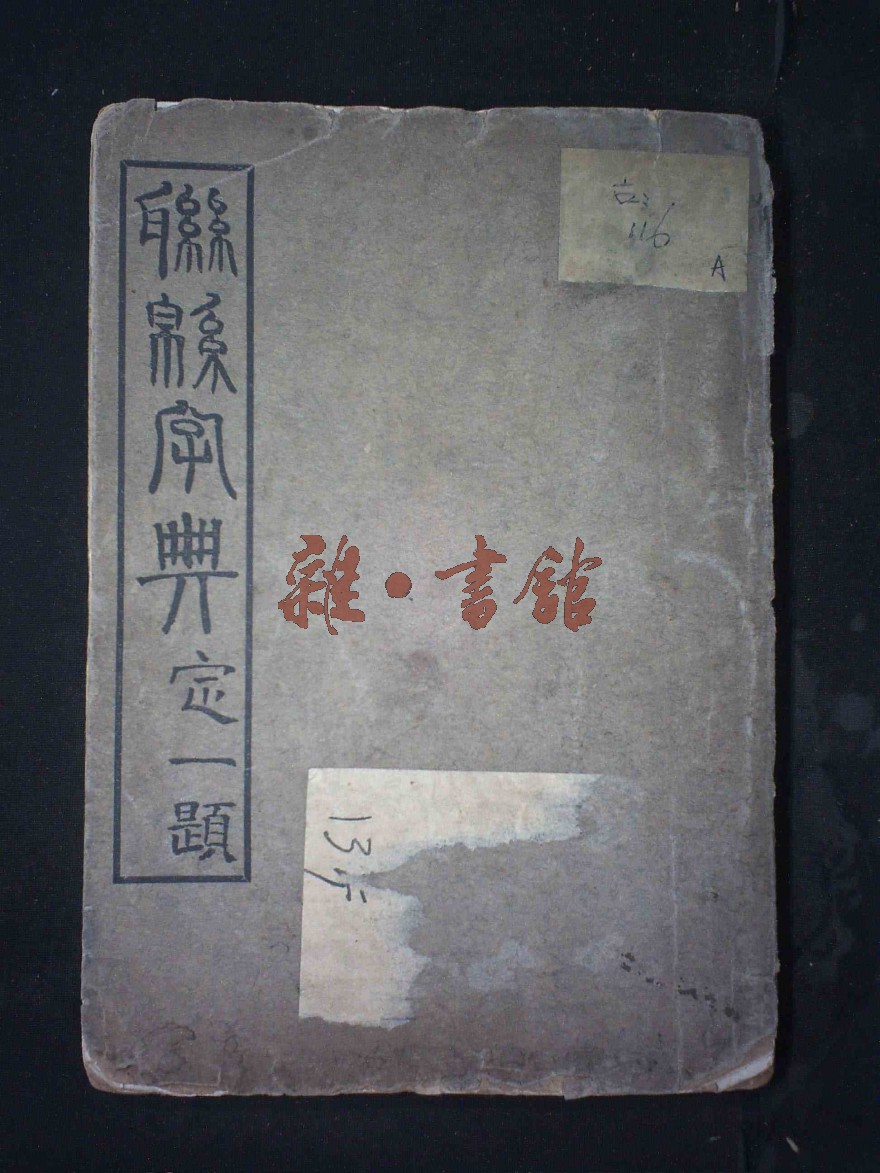 聯緜字典
定一題
116
A
雜·書館
135